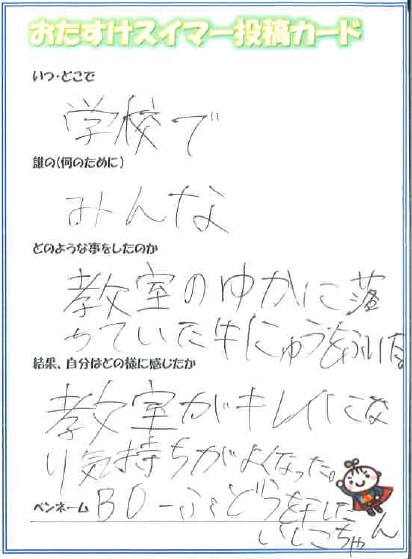 おたすけスイマー投稿カード
いつ・どこで
学校で
誰の(何のために)
みんな
どのような事をしたのか
教室のゆかに落
ちていた牛にゅうをふいた
結果、自分はどの様に感じたか
教室がキレイにな
り気持ちがよくなった。
ペンネーム BO-ぶどうを干した
いしこちゃん